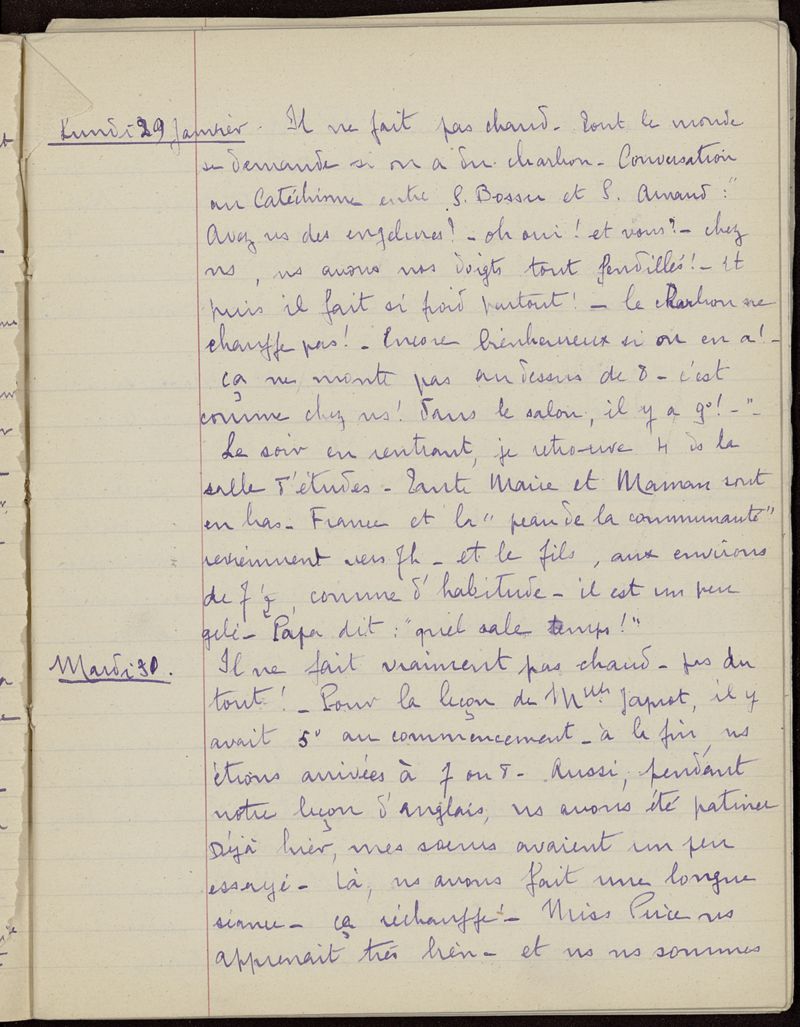 Lundi 29 Janvier. Il ne fait pas chaud - Tout le monde
se demande si on a du charbon - Conversation
au Catéchisme entre S. Bossu et S. Arnaud : "
Avez vs des engelures ? - oh oui ! et vous ? - chez
ns, ns avons nos doigts tout fendillés ! - Et
puis il fait si froid partout ! - le charbon ne
chauffe pas ! - Encore bienheureux si on en a ! -
ça ne monte pas au dessus de 8 - c'est
comme chez ns ! Dans le salon, il y a 9° ! - " -
Le soir en rentrant, je retrouve 4 ds la
salle d'études - Tante Marie et Maman sont
en bas - France et la " peau de la communauté "
reviennent vers 7h - et le fils, aux environs
de 7 ½, comme d'habitude - il est un peu
gelé - Papa dit : "quel sale temps !"
Mardi 30. Il ne fait vraiment pas chaud - pas du
tout ! - Pour la leçon de Melle Japiot, il y
avait 5° au commencement - à la fin, ns
étions arrivées à 7 ou 8 - Aussi, pendant
notre leçon d'anglais, ns avons été patiner
Déjà hier, mes soeurs avaient un peu
essayé - Là, ns avons fait une longue
séance - ça réchauffe ! - Miss Price ns
apprenait très bien - et ns ns sommes